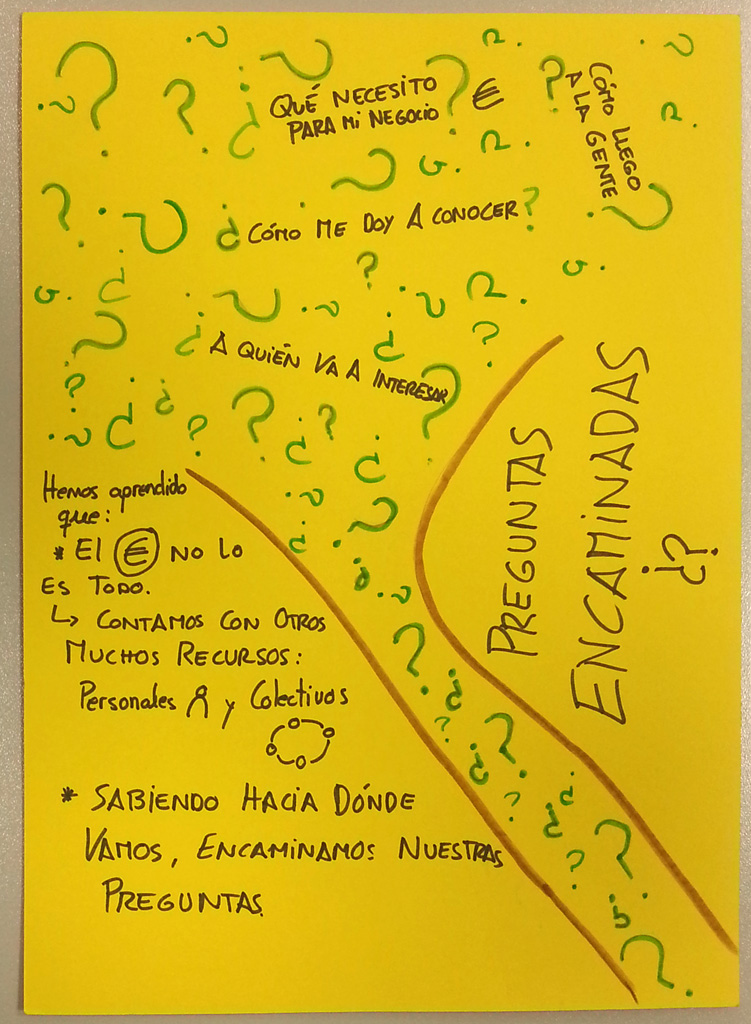 ¿QUÉ NECESITO ?
PARA MI NEGOCIO
€
CÓMO LLEGO
A LA GENTE ?
¿CÓMO ME DOY A CONOCER?
¿A QUIÉN VA A INTERESAR?
PREGUNTAS
ENCAMINADAS
¿?
Hemos aprendido
que:
* El € NO LO
ES TODO.
↳ CONTAMOS CON OTROS
MUCHOS RECURSOS:
Personales y Colectivos
* SABIENDO HACIA DÓNDE
VAMOS, ENCAMINAMOS NUESTRAS
PREGUNTAS.